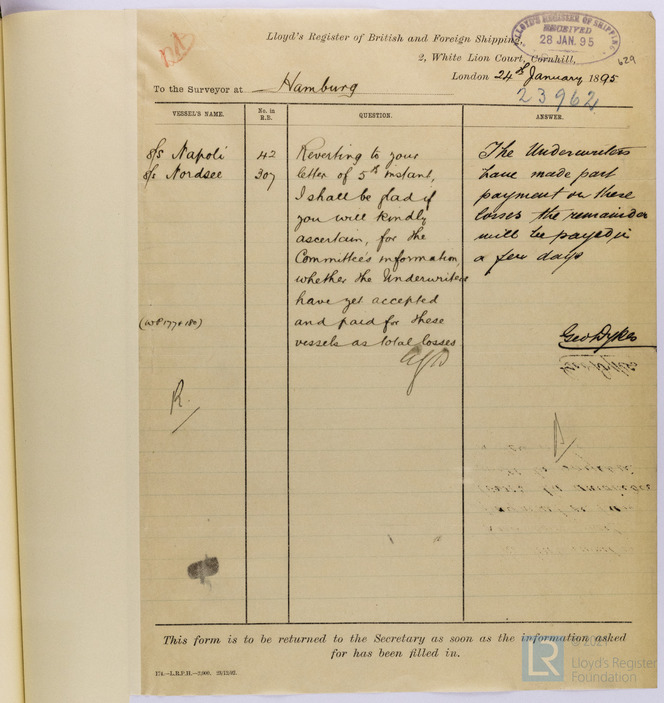 Lloyd's Register of British and Foreign Shipping,
LLOYD'S REGISTER OF SHIPPING
RECEIVED
28 JAN. 95
2, White Lion Court, Cornhill,
629
London 24th January 1895
To the Surveyor at Hamburg
23962
VESSEL'S NAME.
No. in R.B.
QUESTION.
ANSWER.
s/s Napoli 42
s/s Nordsee 307
Reverting to your
letter of 5th instant,
I shall be glad if
you will kindly
ascertain, for the
Committee's information,
whether the Underwriters
have yet accepted
and paid for these
vessels as total losses
The Underwriters
have made part
payment on these
losses the remainder
will be payed in
a few days
Geo Dykes
R.
This form is to be returned to the Secretary as soon as the information asked
for has been filled in.
© 2021
LR
Lloyd's Register
Foundation